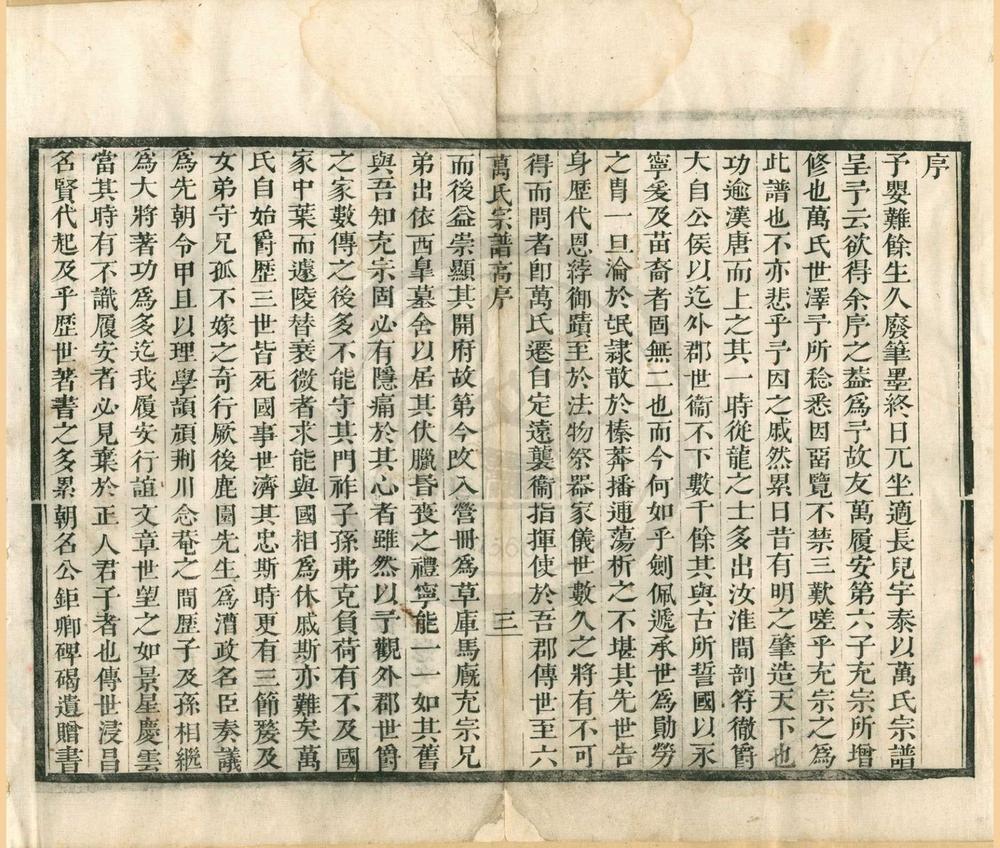 序
予嬰難餘生久廢筆墨終日兀坐適長兒宇泰以萬氏宗譜
呈予云欲得余序之葢爲予故友萬履安第六子充宗所增
修也萬氏世澤予所稔悉因畱覽不禁三歎嗟乎充宗之爲
此譜也不亦悲乎予因之戚然累日昔有明之肇造天下也
功逾漢唐而上之其一時從龍之士多出汝淮間剖符徹爵
大自公侯以迄外郡世衞不下數千餘其與古所誓國以永
寧爰及苗裔者固無二也而今何如乎劍佩遞承世爲勛勞
之胄一旦淪於氓隷散於榛莽播逋蕩析之不堪其先世告
身歷代恩綍御蹟至於法物祭器家儀世數久之將有不可
得而問者卽萬氏遷自定遠襲衞指揮使於吾郡傳世至六
萬氏宗譜高序
三
而後益崇顯其開府故第今改入營冊爲草庫馬廐充宗兄
弟出依西皐墓舍以居其伏臘昏喪之禮寧能一一如其舊
與吾知充宗固必有隱痛於其心者雖然以予觀外郡世爵
之家數傳之後多不能守其門祚子孫弗克負荷有不及國
家中葉而遽陵替衰微者求能與國相爲休戚斯亦難矣萬
氏自始爵歷三世皆死國事世濟其忠斯時更有三節嫠及
女弟守兄孤不嫁之奇行厥後鹿園先生爲漕政名臣奏議
爲先朝令甲且以理學頡頏荆川念菴之間歷子及孫相繼
爲大將著功爲多迄我履安行誼文章世望之如景星慶雲
當其時有不識履安者必見棄於正人君子者也傳世浸昌
名賢代起及乎歷世著書之多累朝名公鉅卿碑碣遺贈書